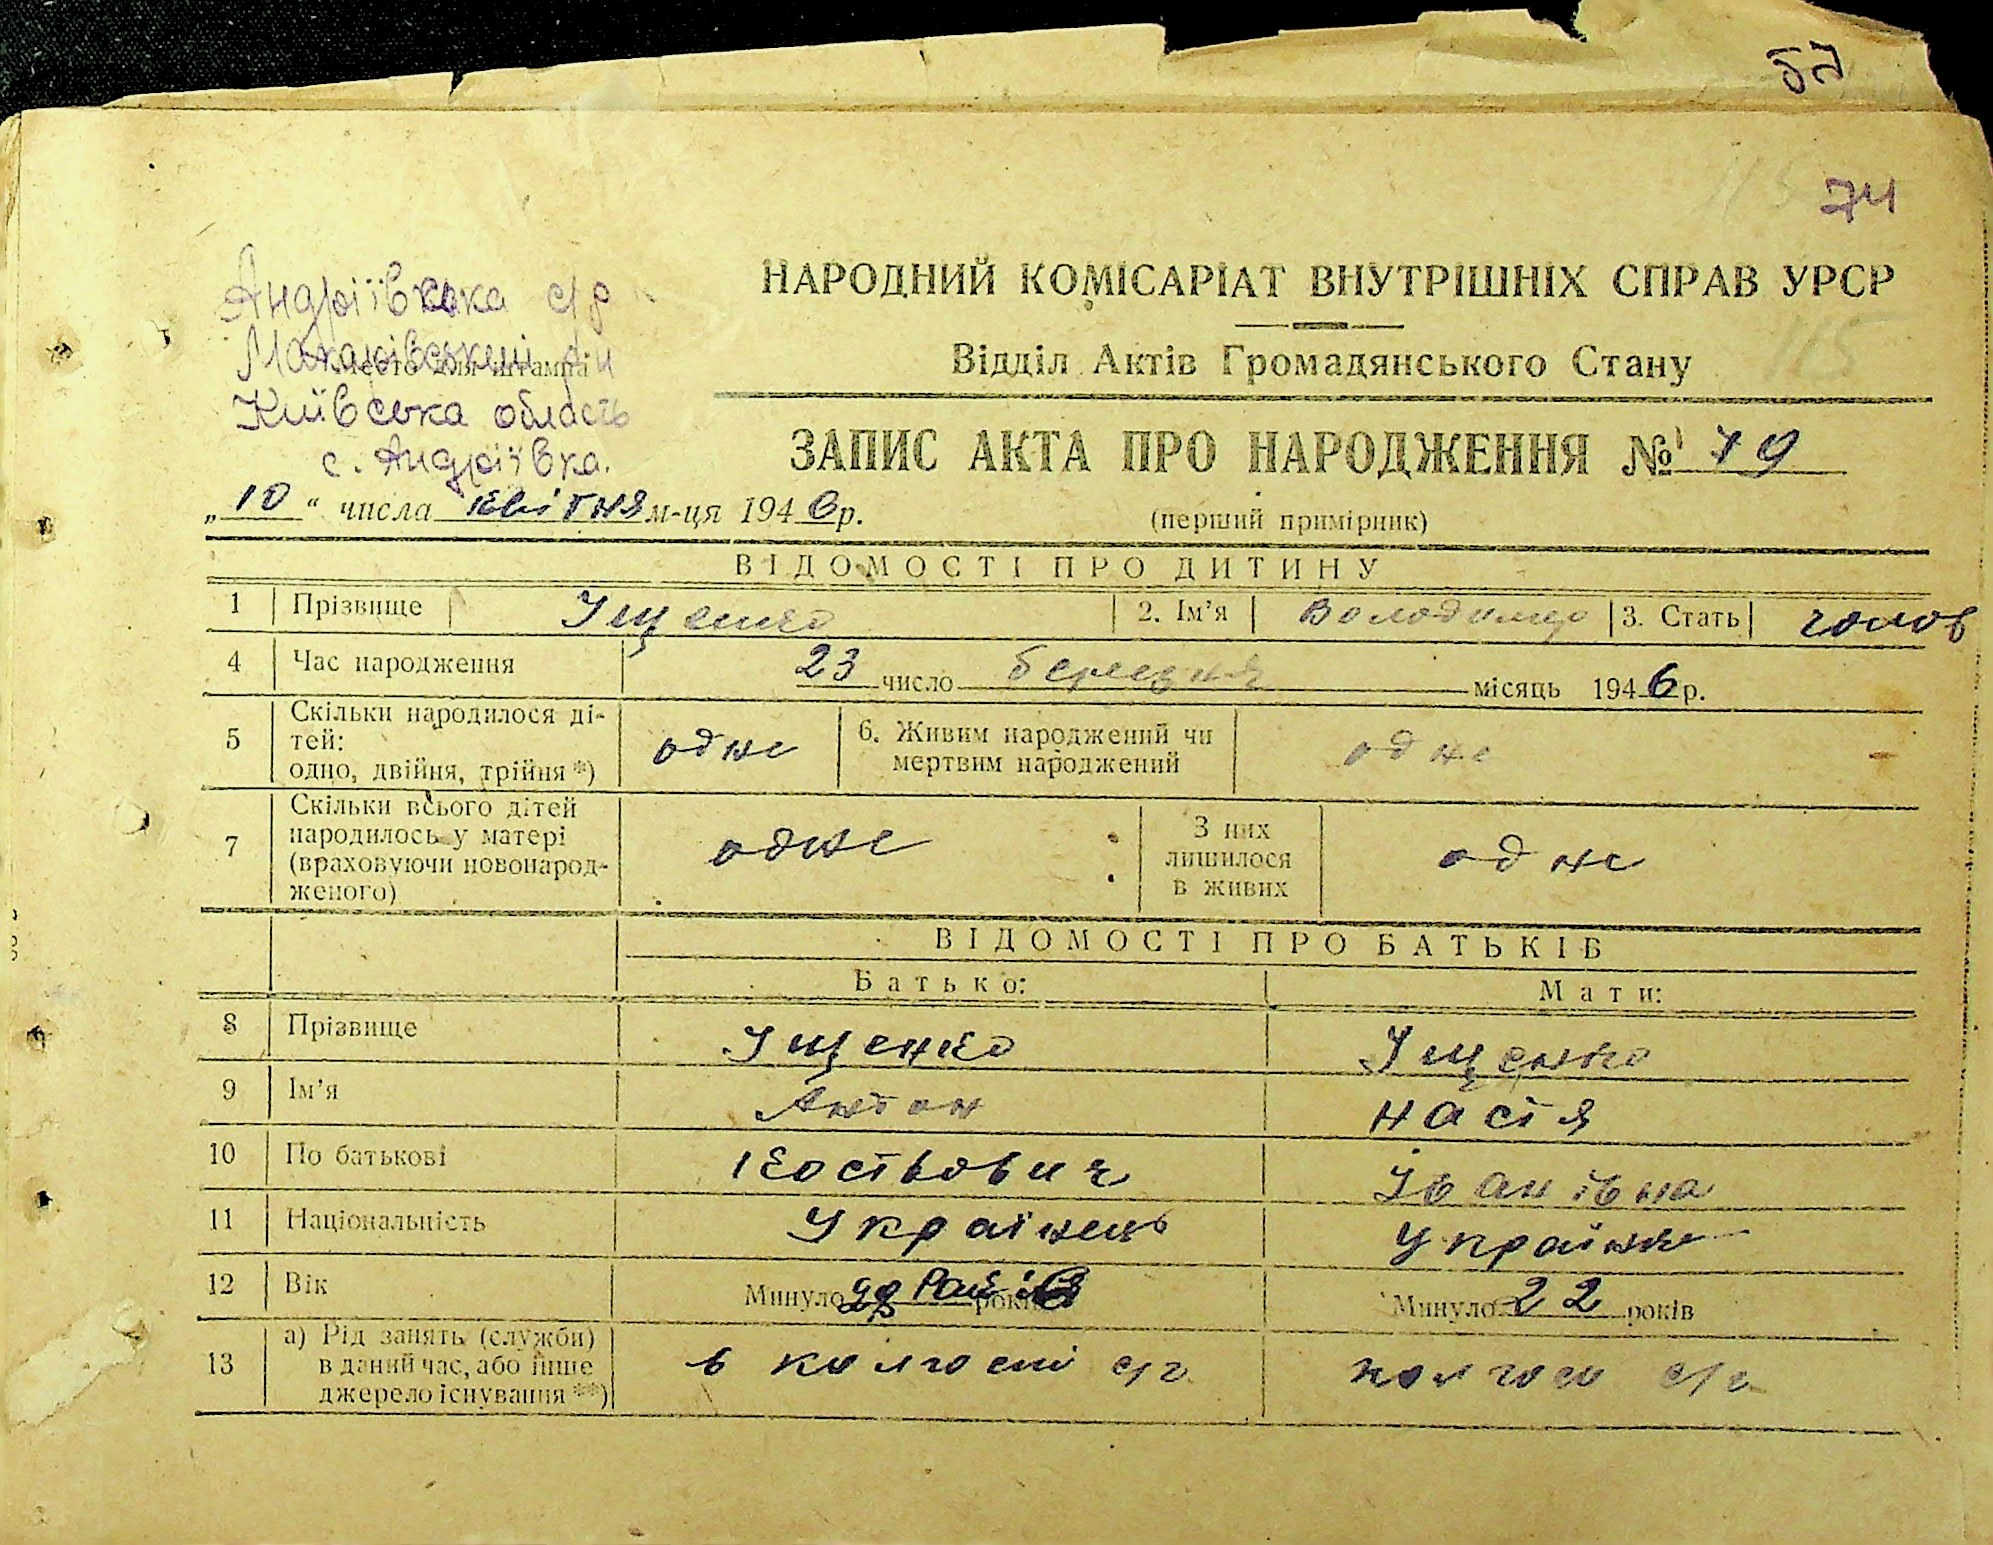 74
115
Андріївська с/р
НАРОДНИЙ КОМІСАРІАТ ВНУТРІШНІХ СПРАВ УРСР
Макарівський р-н
Місце для штампа
Відділ Актів Громадянського Стану
Київська область
с. Андріївка.
ЗАПИС АКТА ПРО НАРОДЖЕННЯ № 19
„10“ числа квітня м-ця 1946 р.
(перший примірник)
ВІДОМОСТІ ПРО ДИТИНУ
1 Прізвище Іщенко 2. Ім'я Володимир 3. Стать чолов
4 Час народження 23 число березня місяць 1946 р.
5 Скільки народилося ді-
тей:
одно, двійня, трійня *) одне
6. Живим народжений чи
мертвим народжений одне
7 Скільки всього дітей
народилось у матері
(враховуючи новонарод-
женого) одне
З них
лишилося
в живих одне
ВІДОМОСТІ ПРО БАТЬКІВ
Батько: Мати:
8 Прізвище Іщенко Іщенко
9 Ім'я Антон Настя
10 По батькові Костьович Іванівна
11 Національність Українець Українка
12 Вік Минуло років Минуло 22 років
13 а) Рід занять (служби)
в даний час, або інше
джерело існування **)
в колгоспі с/г колгосп с/г